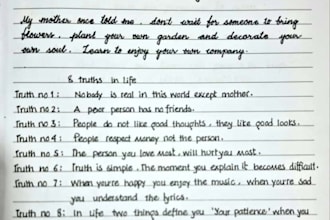 My mother once told me, don't wait for someone to bring
flowers, plant your own garden and decorate your
own soul. Learn to enjoy your own company.
8 truths in life
Truth no 1: Nobody is real in this world except mother.
Truth no 2: A poor person has no friends.
Truth no 3: People do not like good thoughts, they like good looks.
Truth no 4: People respect money not the person.
Truth no 5: The person you love most, will hurt you most.
Truth no 6: Truth is simple, The moment you explain it becomes difficult.
Truth no 7: When you're happy you enjoy the music, when you're sad
you understand the lyrics.
Truth no 8: In life two things define you 'Your patience' when you